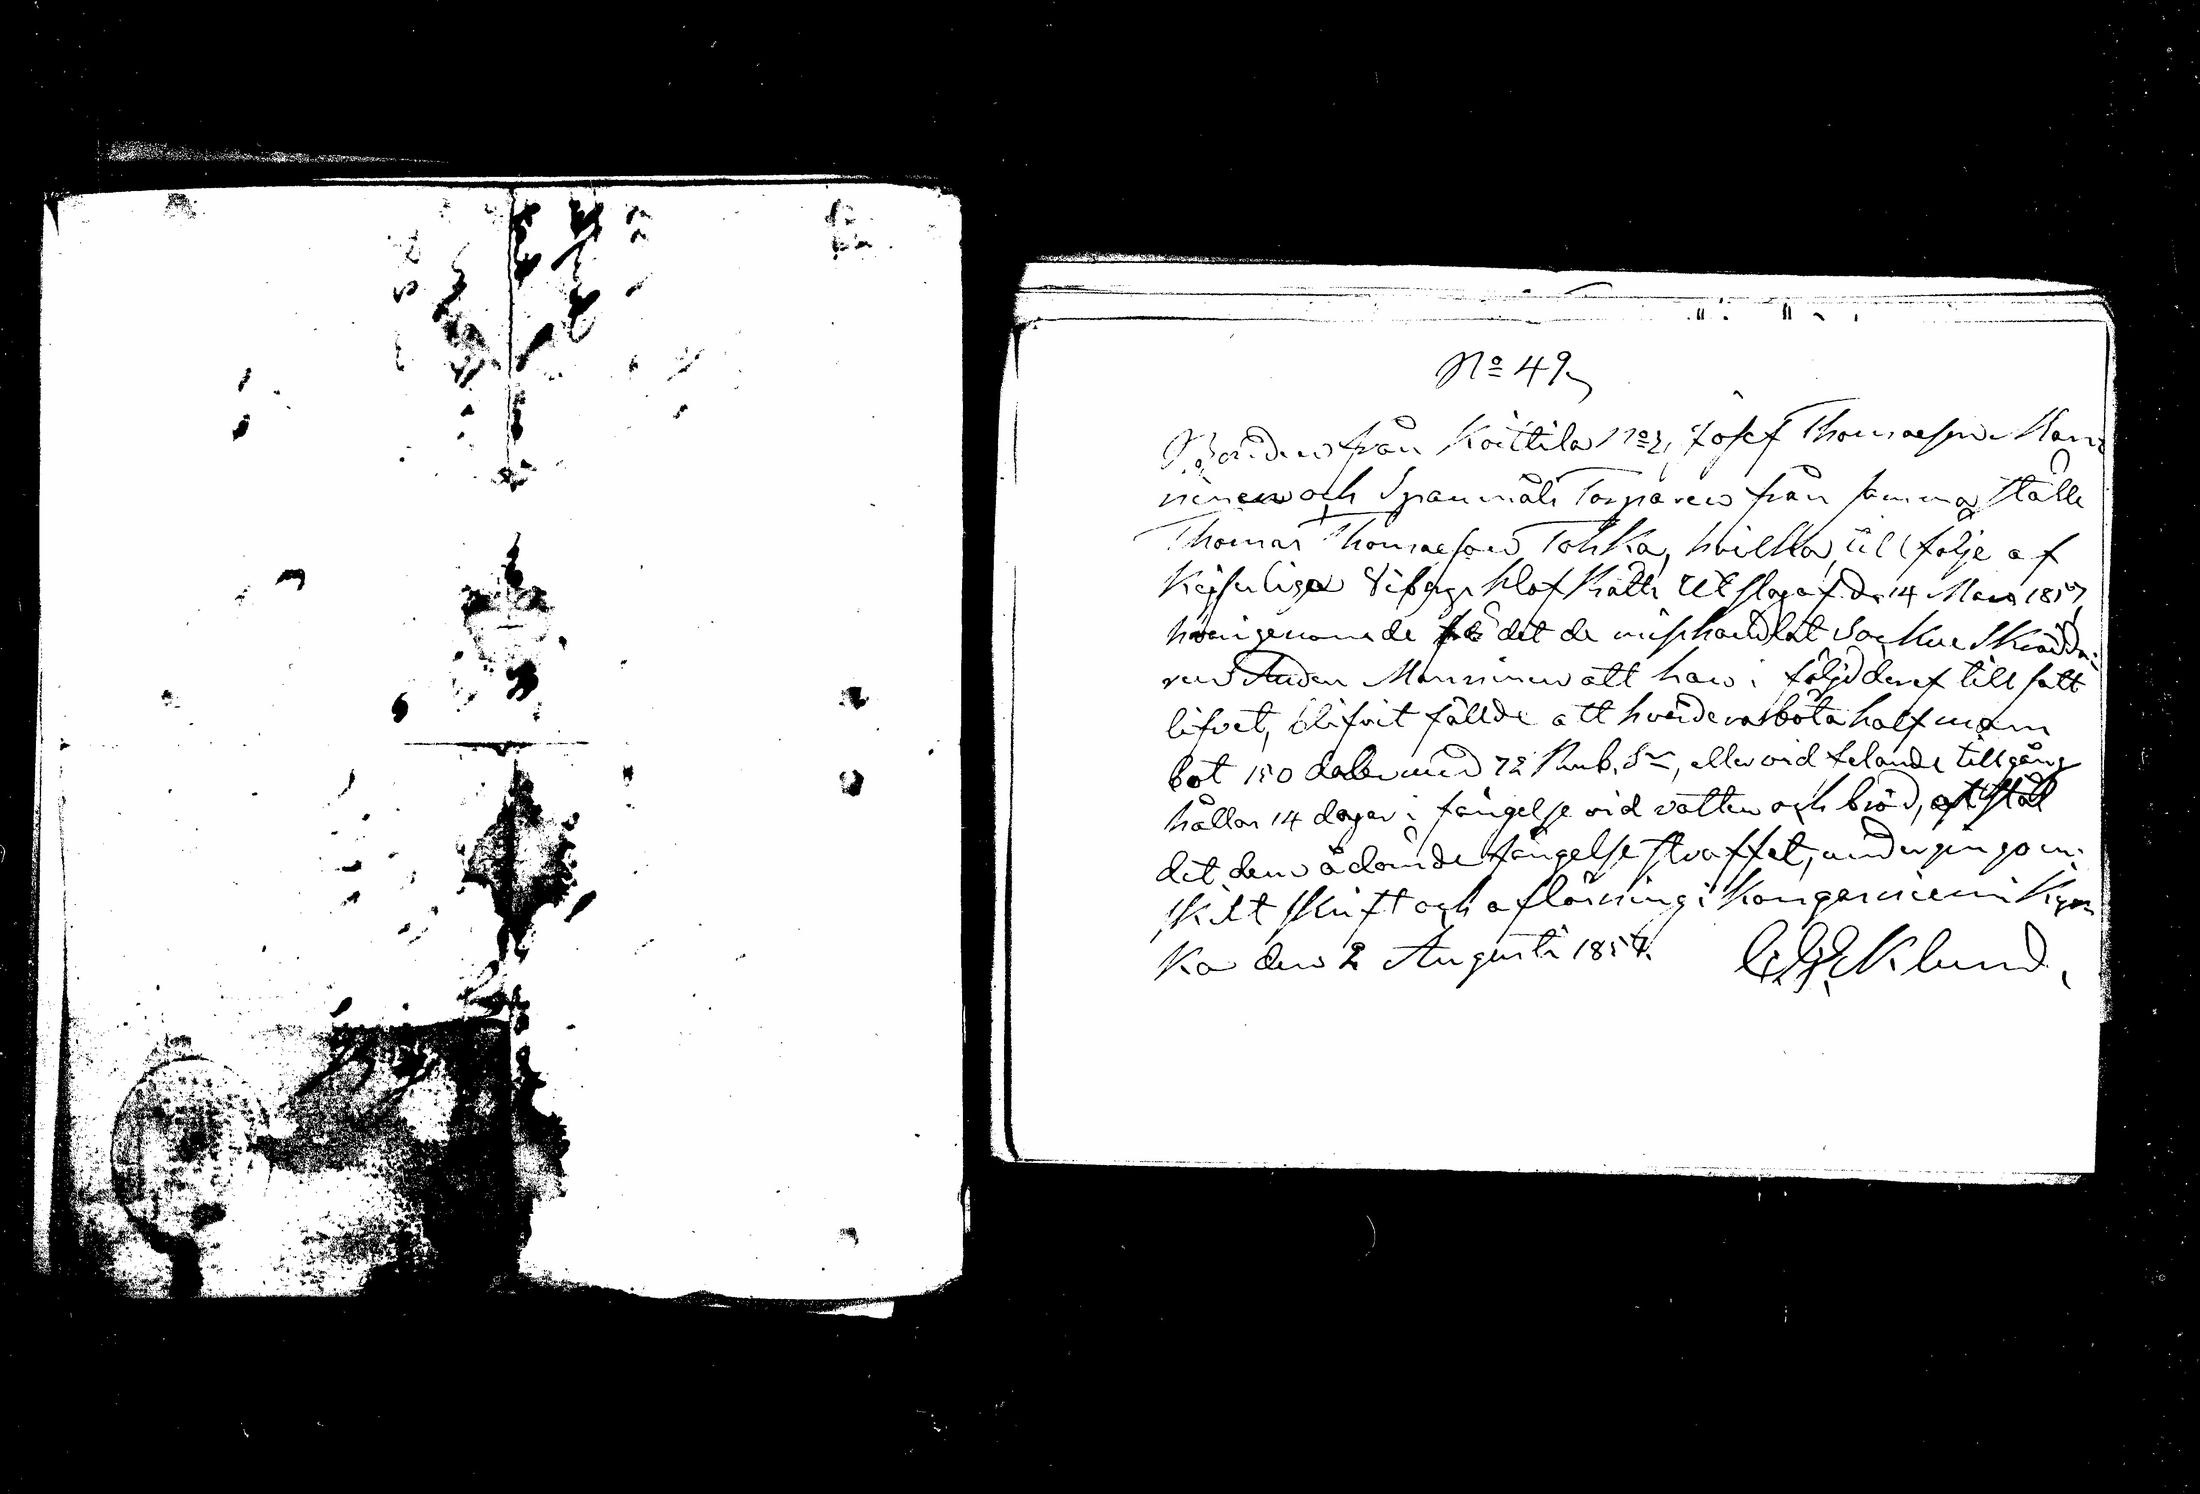 No 49,
Bonden från Koittila No 2, Josef Thomasson Man
ninen och Spanmåls Torparen från samma ställe
Thomas Thomasson Tohka, hvilka, till följe af
Kejserliga Viborgs Hof Rätts Utslag af d. 14 Mars 1857,
hvarigenom de för det de misshandlat Sockne Skrädda-
ren Anders Manninen att han i följd deraf till satt
lifvet, blifvit fällde att hvardera böta half mans
bot 150 daler med 72 Rub. Sr, eller vid felande tillgång
hållas 14 dagar i fängelse vid vatten och bröd,
det dem ådömde fängelse straffet, undergingo en-
skilt skrift och aflösning i Kangasniemi Kyr
ka den 2 Augusti 1857.
Eklund.